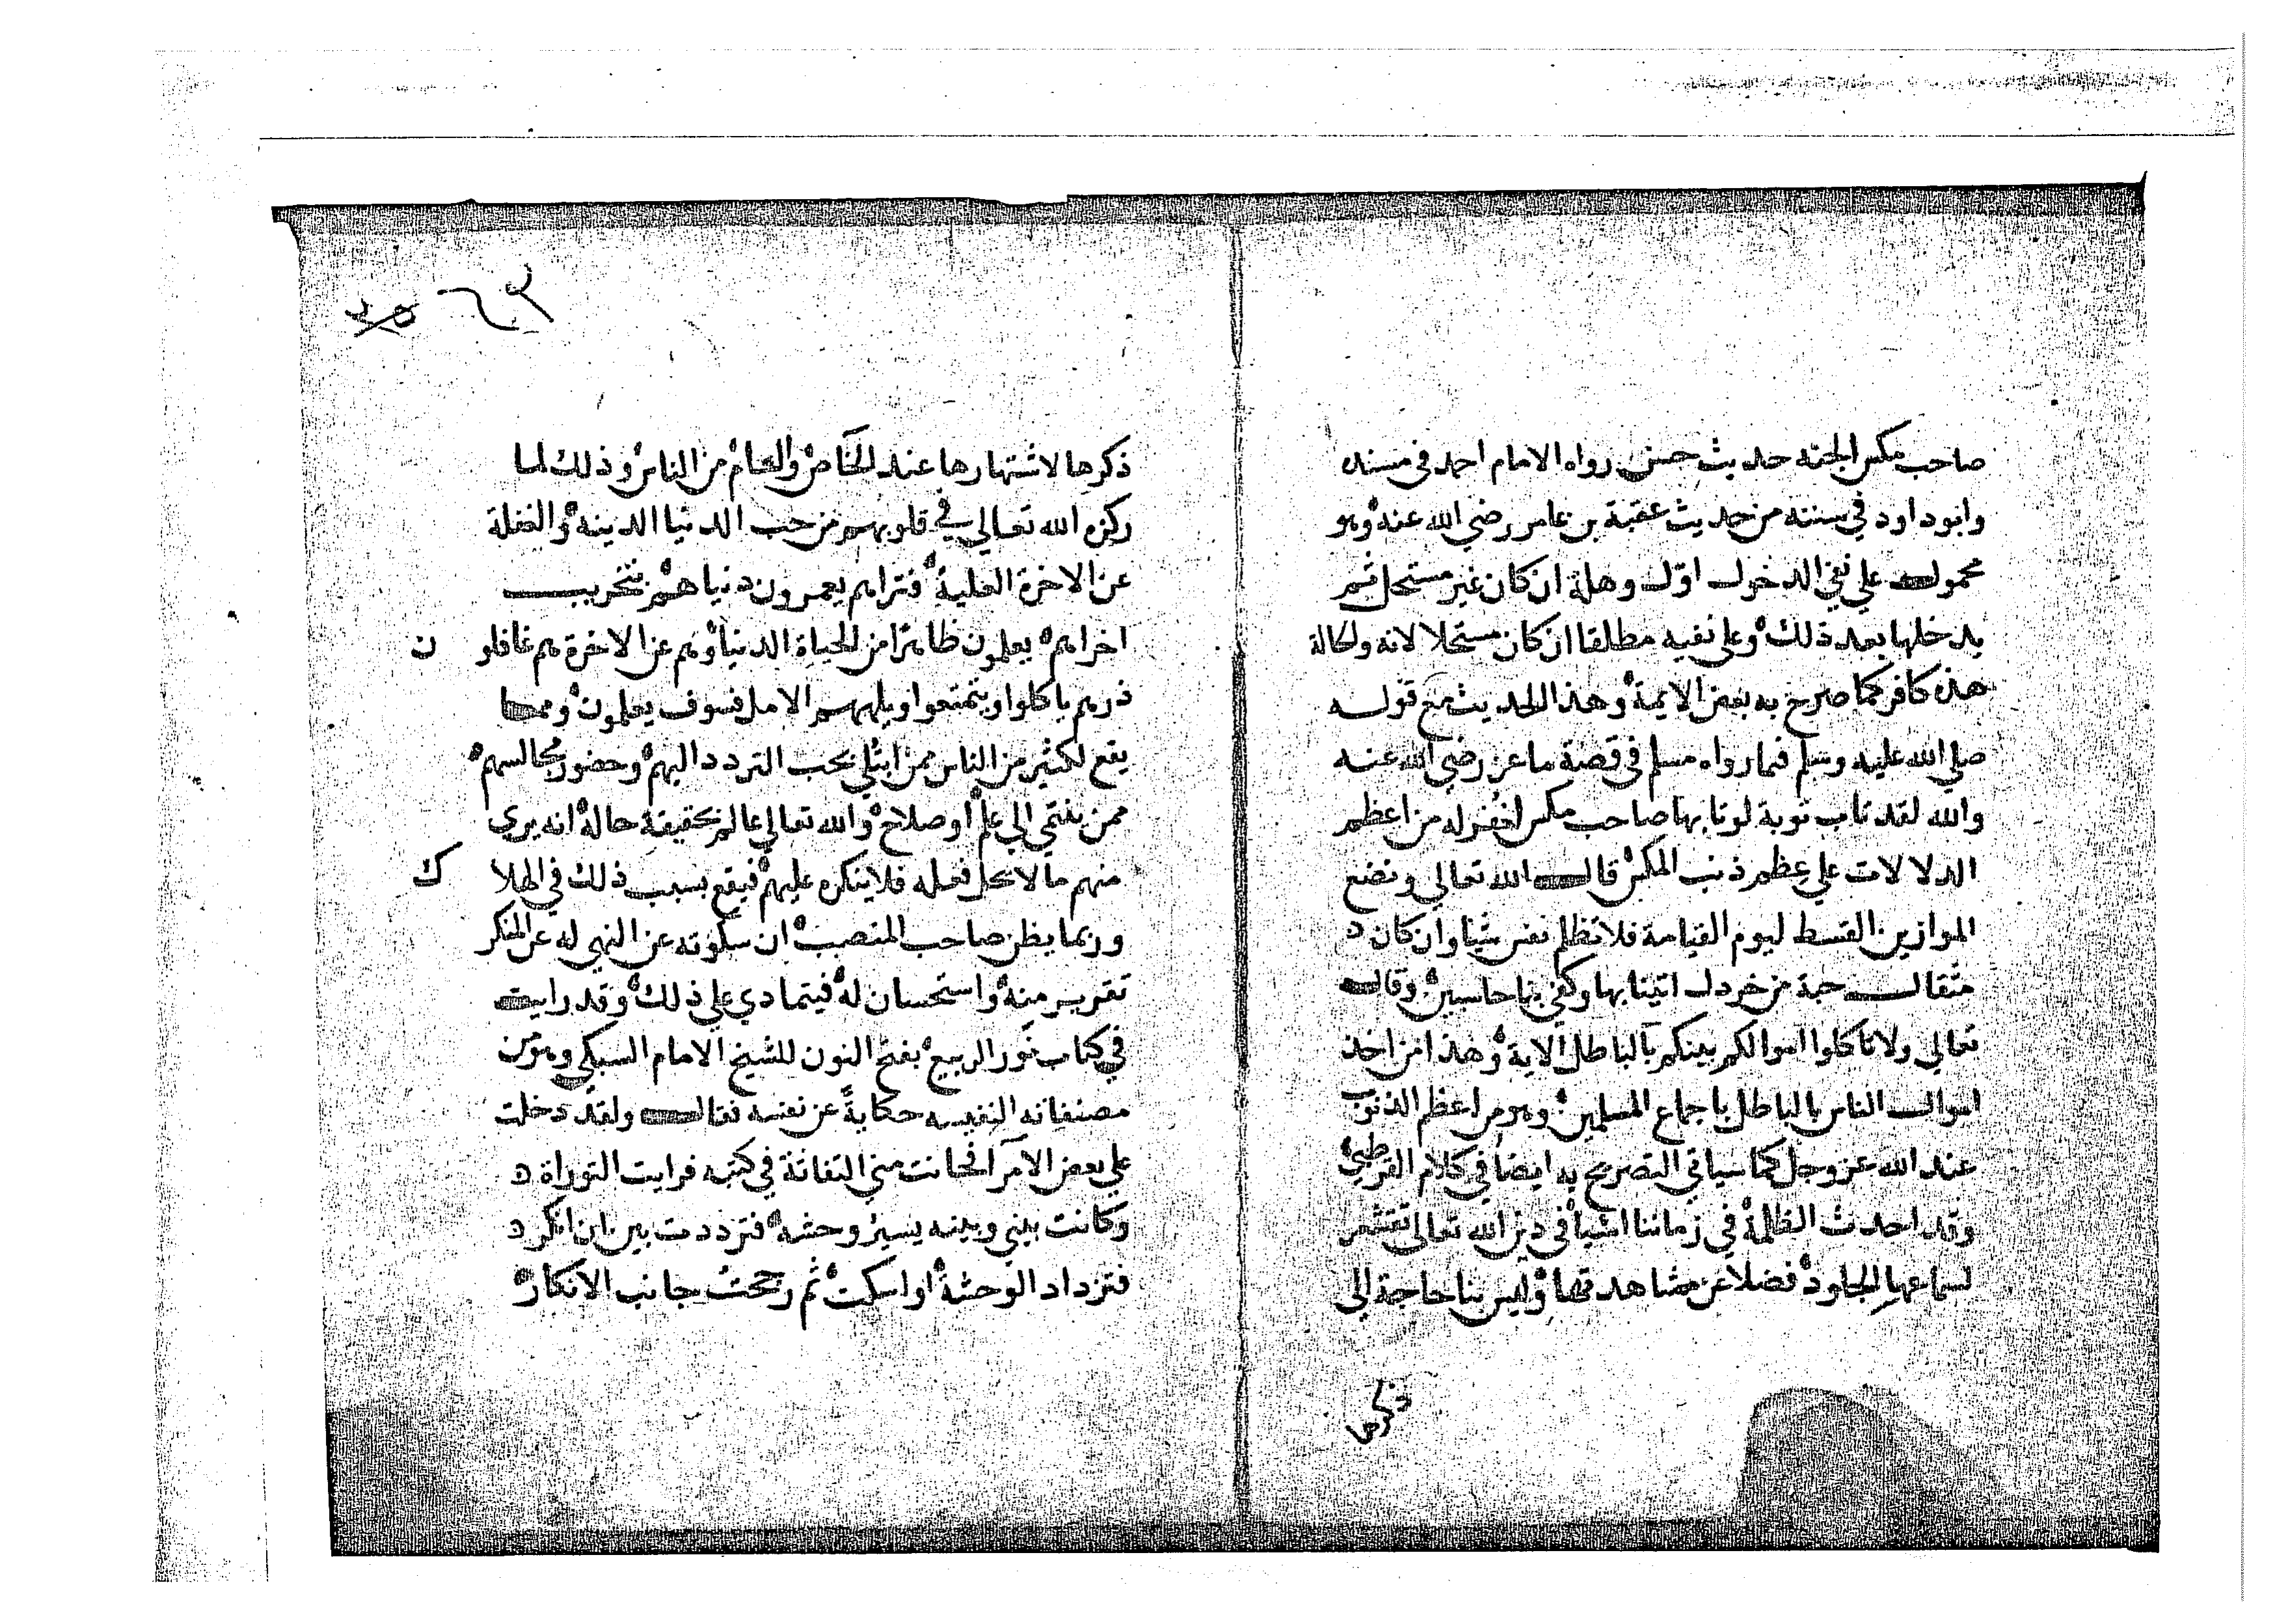 صاحب مكس الجنة حديث حسن رواه الامام احمد في مسنده
وابوداود في سننه من حديث عقبة بن عامر رضي الله عنه وهو
محمول على نفي الدخول اول وهلة ان كان غير مستحل ثم
يدخلها بعد ذلك وعلى نفيه مطلقا ان كان مستحلا لانه والحالة
هذه كافر كما صرح به بعض الايمة وهذا الحديث مع قوله
صلي الله عليه وسلم فيما رواه مسلم في قصة ماعز رضي الله عنه
والله لقد تاب توبة لو تابها صاحب مكس لغفر له من اعظم
الدلالات علي عظم ذنب المكس قال الله تعالي ونضع
الموازين القسط ليوم القيامة فلا تظلم نفس شيا وان كان
مثقال حبة من خردل اتينا بها وكفي بنا حاسبين وقال
تعالي ولا تاكلوا اموالكم بينكم بالباطل الاية وهذا من اخذ
اموال الناس بالباطل باجماع المسلمين وهو من اعظم الذنوب
عند الله عز وجل كما سياتي التصريح به ايضا في كلام القرطبي
وقد احدث الظلمة في زماننا اشيا في دين الله تعالى تقشعر
لسماعها الجلود فضلا عن مشاهدتها وليس بنا حاجة الي
ذكرها
ذكرها لاشتهارها عند الخاص والعام من الناس وذلك لما
ركزه الله تعالي في قلوبهم من حب الدنيا الدينة والغفلة
عن الاخرة العلية فتراهم يعمرون دنياهم بتخريب
اخراهم يعلمون ظاهرا من الحياة الدنيا وهم عن الاخرة هم غافلون
ذرهم ياكلوا ويتمتعوا ويلههم الامل فسوف يعلمون ومما
يقع لكثير من الناس ممن ابتلي بحب التردد اليهم وحضور مجالسهم
ممن ينتمي الي علم او صلاح والله تعالي عالم بحقيقة حاله انه يري
منهم ما لا يحل فعله فلا ينكره عليهم فيقع بسبب ذلك في الهلاك
وربما يظن صاحب المنصب ان سكوته عن النهي له عن المنكر
تقرير منه واستحسان له فيتمادي علي ذلك وقد رايت
في كتاب نور الربيع بفتح النون للشيخ الامام السبكي وهو من
مصنفاته النفيسه حكاية عن نفسه فقال ولقد دخلت
علي بعض الامرآ فحانت مني التفاتة في كتبه فرايت التوراة
وكانت بيني وبينه يسير وحشه فترددت بين ان انكر
فتزداد الوحشة او اسكت ثم رجحت جانب الانكار